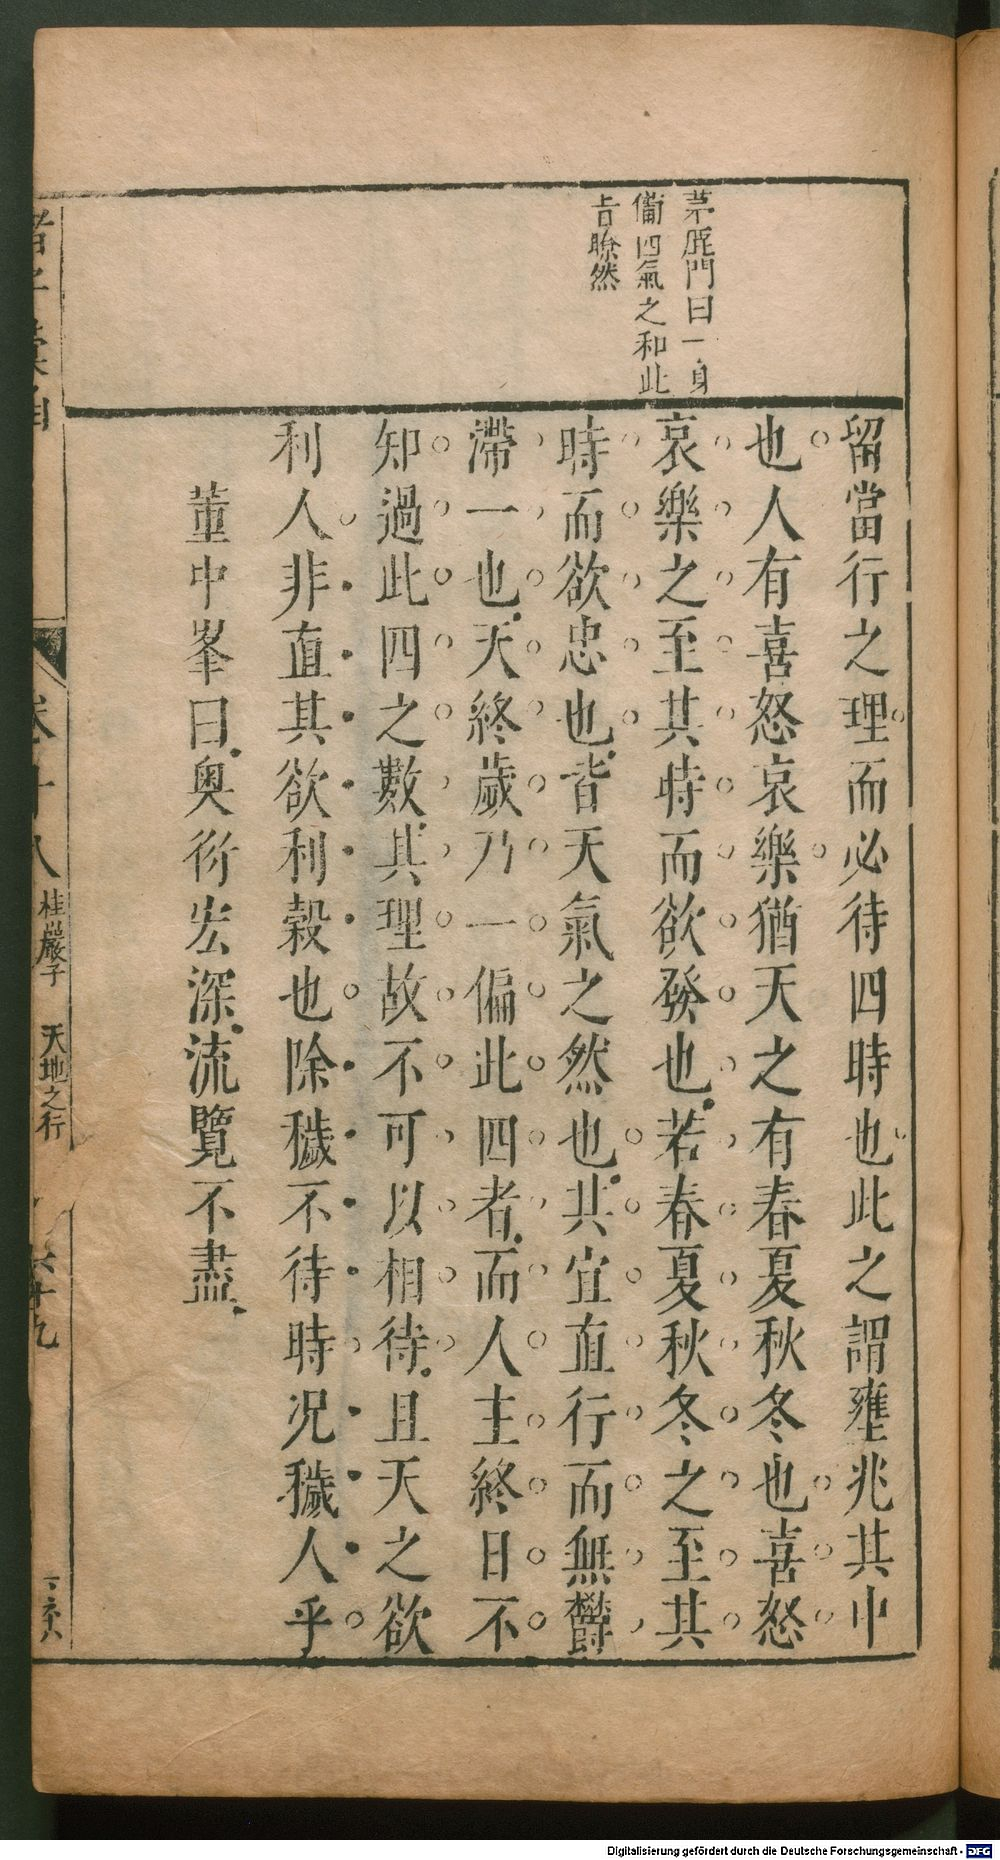 茅鹿門曰一身
備四氣之和此
旨瞭然
留當行之理而必待四時也此之謂壅兆其中
也人有喜怒哀樂猶天之有春夏秋冬也喜怒
哀樂之至其時而欲發也若春夏秋冬之至其
時而欲忠也皆天氣之然也其宜直行而無欝
滯一也天終歲乃一偏此四者而人主終日不
知過此四之數其理故不可以相待且天之欲
利人非直其欲利穀也除穢不待時况穢人乎
董中峯曰奥衍宏深流覽不盡
諸子彙函
卷十八
桂巖子
天地之行
六十九
Digitalisierung gefördert durch die Deutsche Forschungsgemeinschaft - DFG